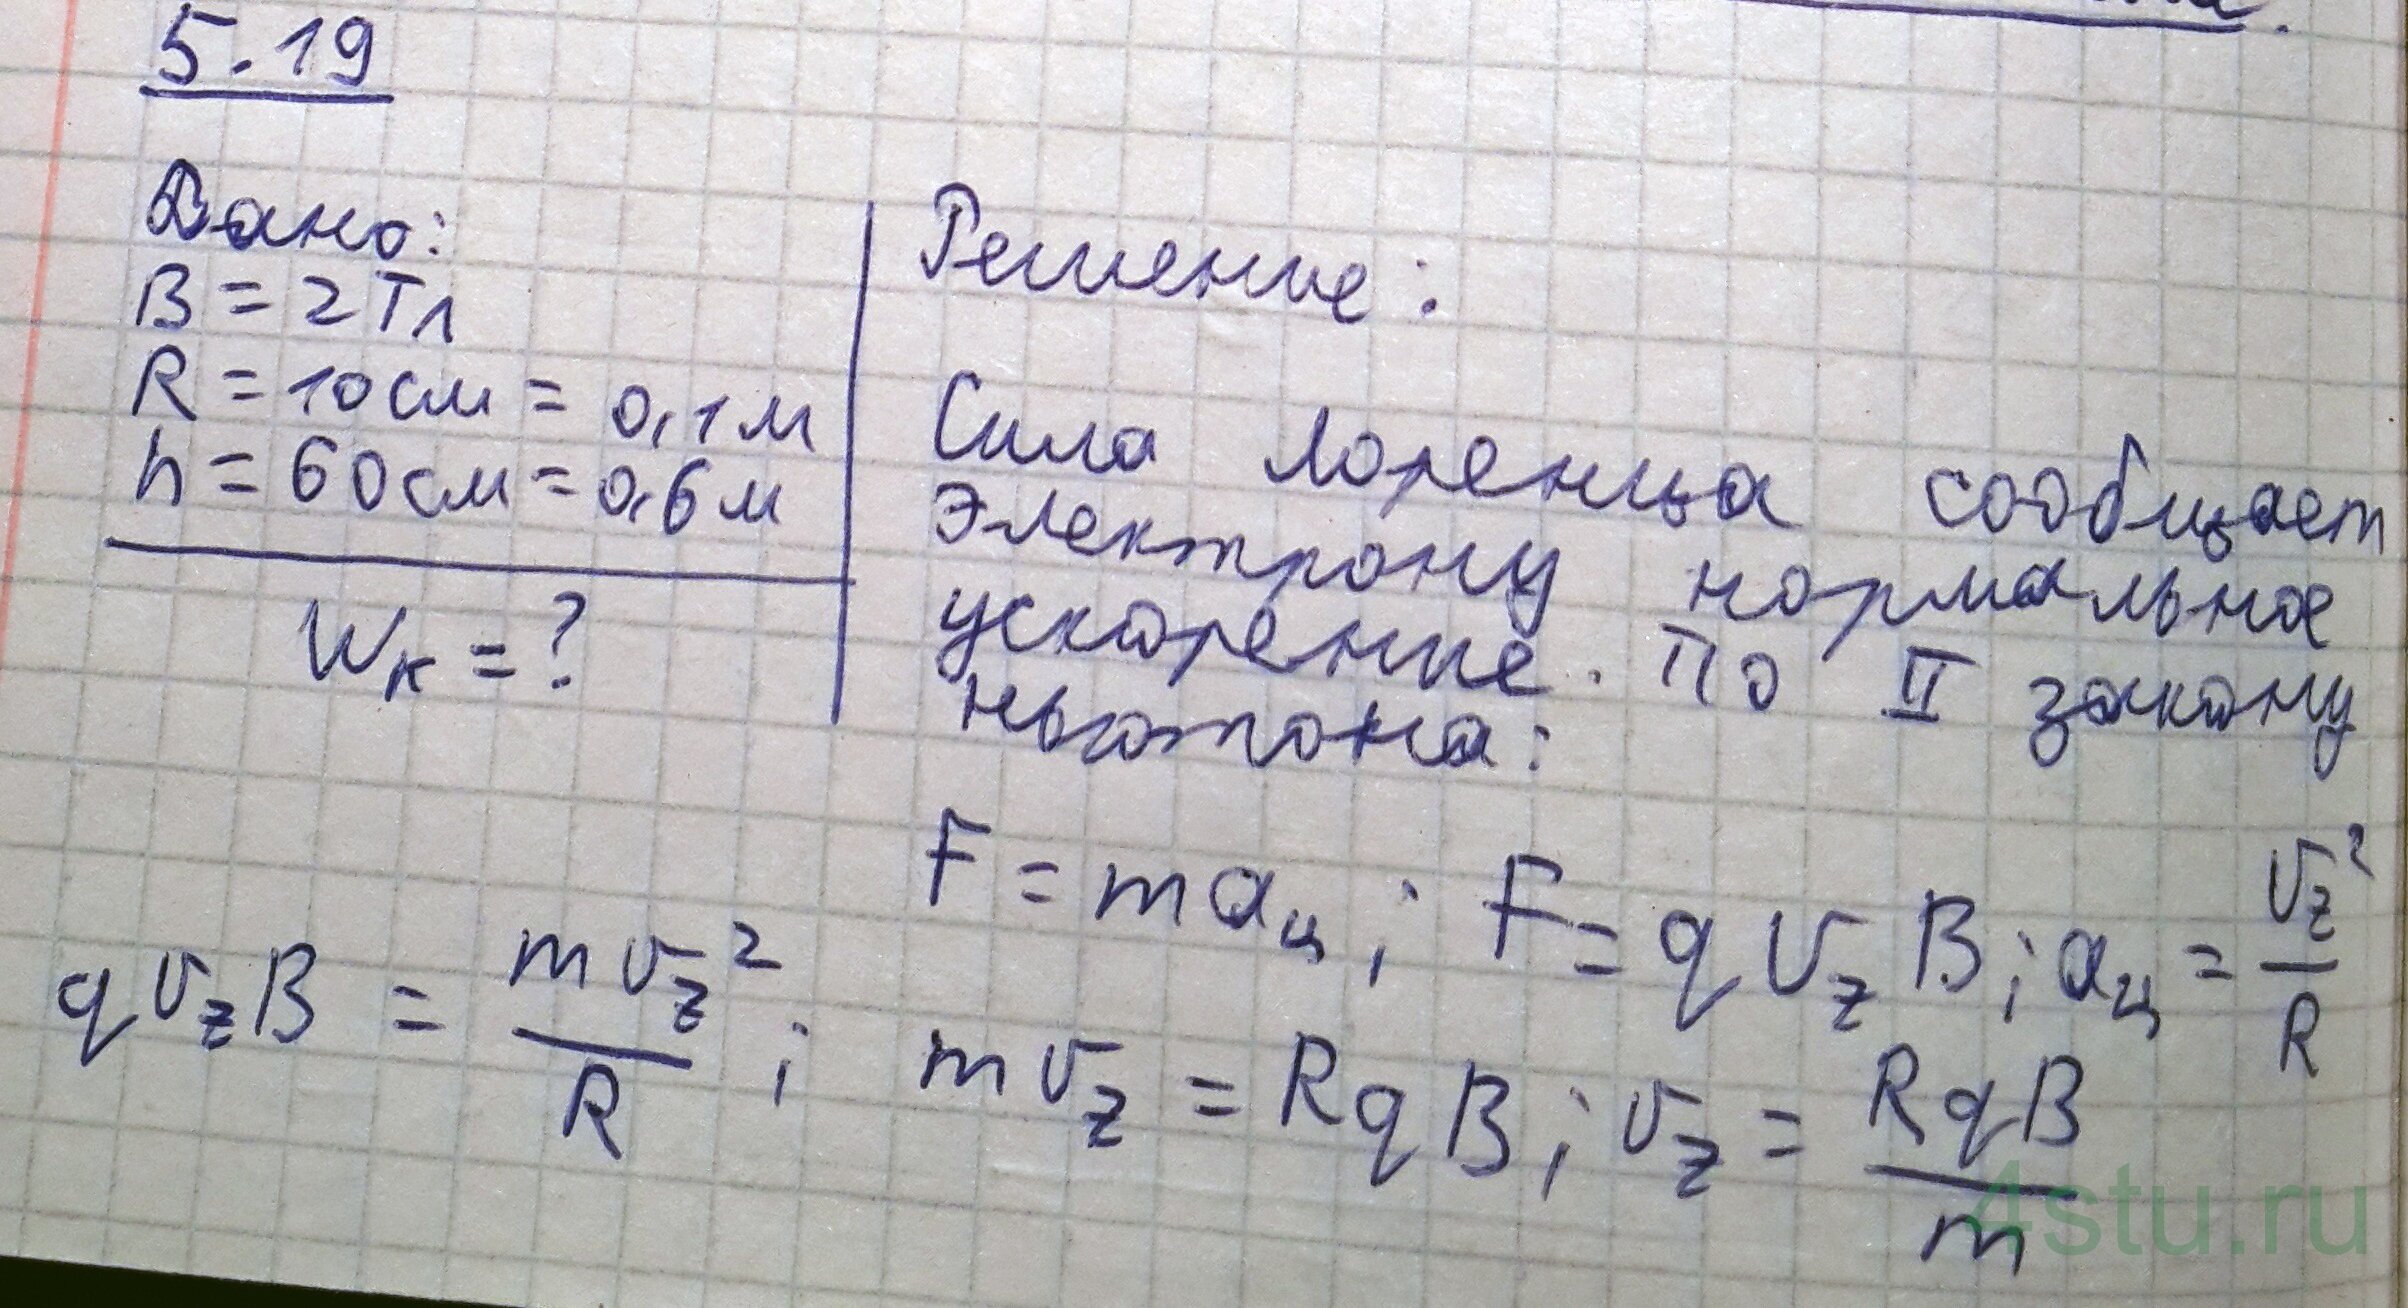 5.19
Дано:
B = 2Тл
R = 10см = 0,1м
h = 60см = 0,6м
Wк = ?
Решение:
Сила Лоренца сообщает
электрону нормальное
ускорение. По II закону
Ньютона:
F = maц; F = qv_zB; aц = v_z²/R
qv_zB = mv_z²/R; mv_z = RqB; v_z = RqB/m
4stu.ru